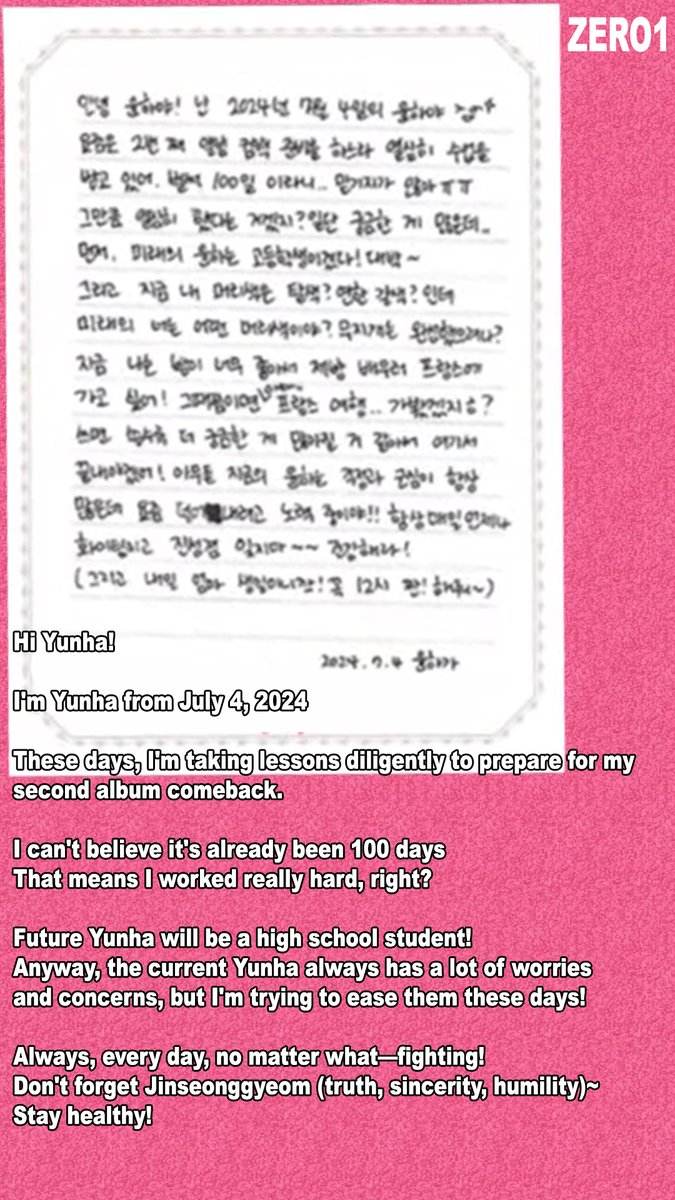 ZERO1
안녕 윤하야! 난 2024년 7월 4일의 윤하야
요즘은 2번 째 앨범 컴백 준비를 하느라 열심히 수업을
받고 있어. 벌써 100일 이라니.. 믿기지가 않아 ㅠㅠ
그만큼 열심히 했다는 거겠지? 일단 궁금한 게 많은데..
먼저, 미래의 윤하는 고등학생이겠다! 대박~
그리고 지금 내 머리색은 탈색? 연한 갈색? 인데
미래의 너는 어떤 머리색이야? 무지개는 완성했으려나?
지금 나는 빵이 너무 좋아서 제빵 배우러 프랑스에
가고 싶어! 그때쯤이면 프랑스 여행.. 가봤겠지?
쓰면 쓸수록 더 궁금한 게 많아질 거 같아서 여기서
끝내야겠어! 아무튼 지금의 윤하는 걱정과 근심이 항상
많은데 요즘 덜어내려고 노력 중이야!! 항상 매일 언제나
화이팅하고 진성겸 잊지마~~ 건강해라!
(그리고 내일 엄마 생일이니깐! 꼭 12시 땡! 해줘~)
2024. 7. 4 윤하가
Hi Yunha!
I'm Yunha from July 4, 2024
These days, I'm taking lessons diligently to prepare for my
second album comeback.
I can't believe it's already been 100 days
That means I worked really hard, right?
Future Yunha will be a high school student!
Anyway, the current Yunha always has a lot of worries
and concerns, but I'm trying to ease them these days!
Always, every day, no matter what—fighting!
Don't forget Jinseonggyeom (truth, sincerity, humility)~
Stay healthy!